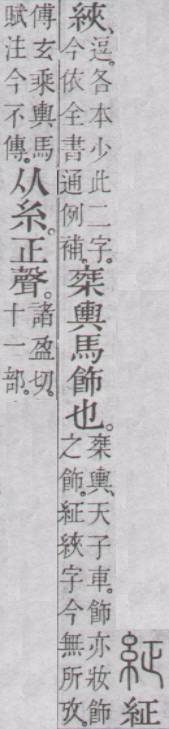 䋊 䋊
綊、
逗。各本少此二字。
今依全書通例補。
椉輿馬飾也。
椉輿、天子車。飾亦妝飾
之飾。䋊綊字今無所攷。
傅玄乘輿馬
賦注今不傳。
从糸。正聲。
諸盈切。
十一部。